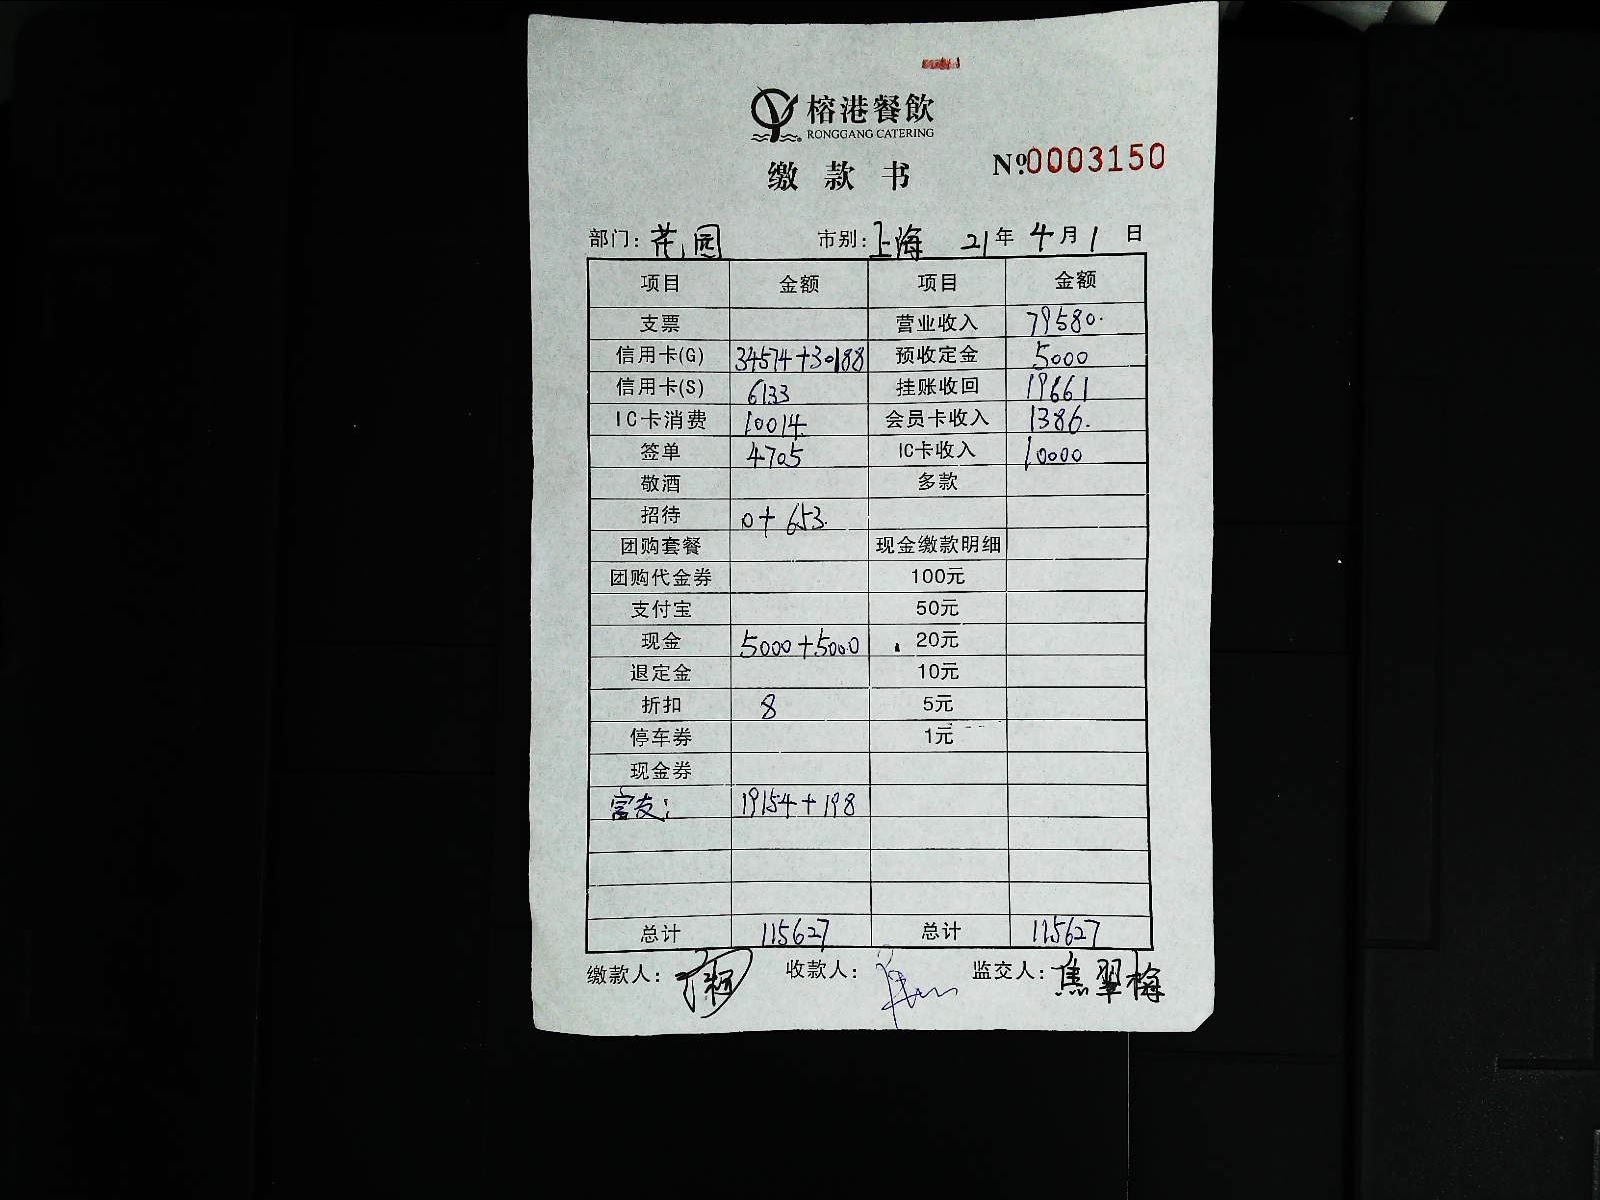 榕港餐飲
RONGGANG CATERING
缴款书
№0003150
部门：花园 市别：上海 21年4月1日
项目 金额 项目 金额
支票 营业收入 79580.
信用卡(G) 34574+30188 预收定金 5000
信用卡(S) 6133 挂账收回 19661
IC卡消费 10014 会员卡收入 1386.
签单 4705 IC卡收入 10000
敬酒 多款
招待 0+653.
团购套餐 现金缴款明细
团购代金券 100元
支付宝 50元
现金 5000+5000 20元
退定金 10元
折扣 8 5元
停车券 1元
现金券
富友： 19154+198
总计 115627 总计 115627
缴款人： 收款人： 监交人：焦翠梅